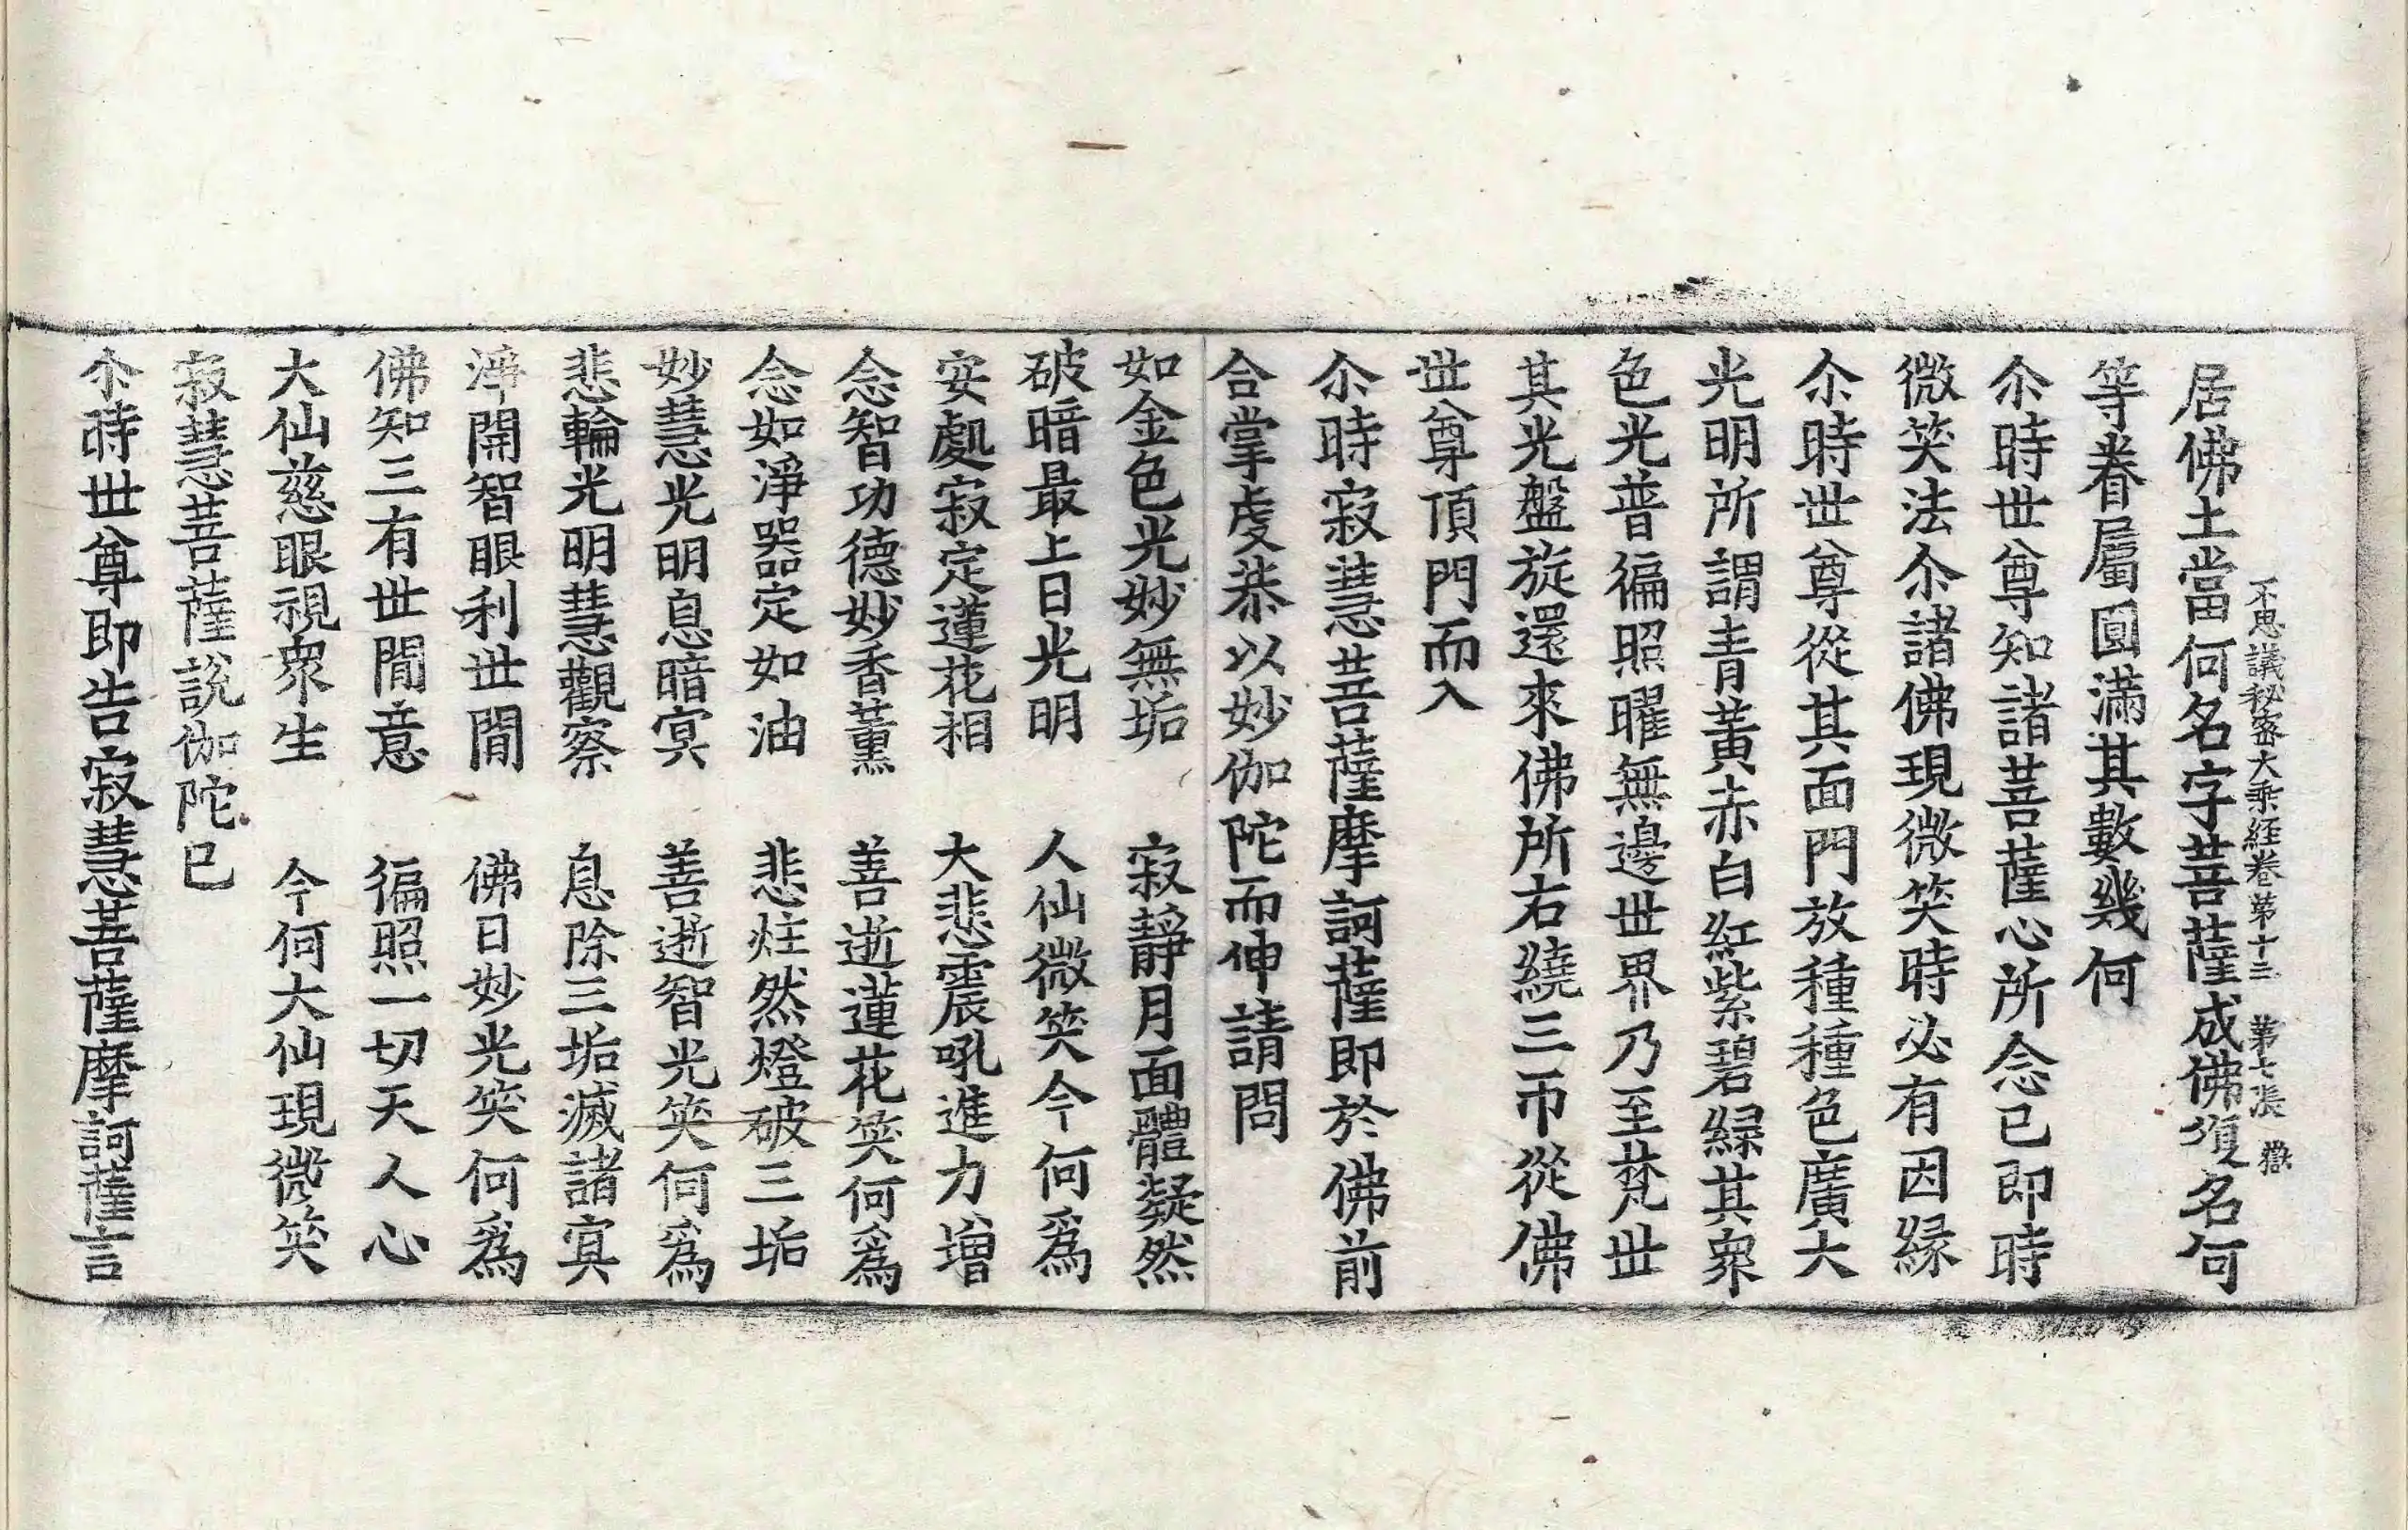 不思議秘密大乘経卷第十三　第七張　嶽
居佛土當何名字菩薩成佛須名何
等眷屬圓滿其數幾何
尒時世尊知諸菩薩心所念已即時
微笑法尒諸佛現微笑時必有因縁
尒時世尊從其面門放種種色廣大
光明所謂青黃赤白紅紫碧緑其衆
色光普徧照曜無邊世界乃至梵世
其光盤旋還來佛所右繞三帀從佛
世尊頂門而入
尒時寂慧菩薩摩訶薩即於佛前
合掌䖍恭以妙伽陀而伸請問
如金色光妙無垢　寂靜月面體凝然
破暗最上日光明　人仙微笑今何爲
安處寂定蓮花相　大悲震吼進力增
念智功德妙香薰　善逝蓮花笑何爲
念如淨器定如油　悲炷然燈破三垢
妙慧光明息暗冥　善逝智光笑何爲
悲輪光明慧觀察　息除三垢滅諸冥
淨開智眼利世間　佛日妙光笑何爲
佛知三有世間意　徧照一切天人心
大仙慈眼視衆生　今何大仙現微笑
寂慧菩薩說伽陀已
尒時世尊即告寂慧菩薩摩訶薩言